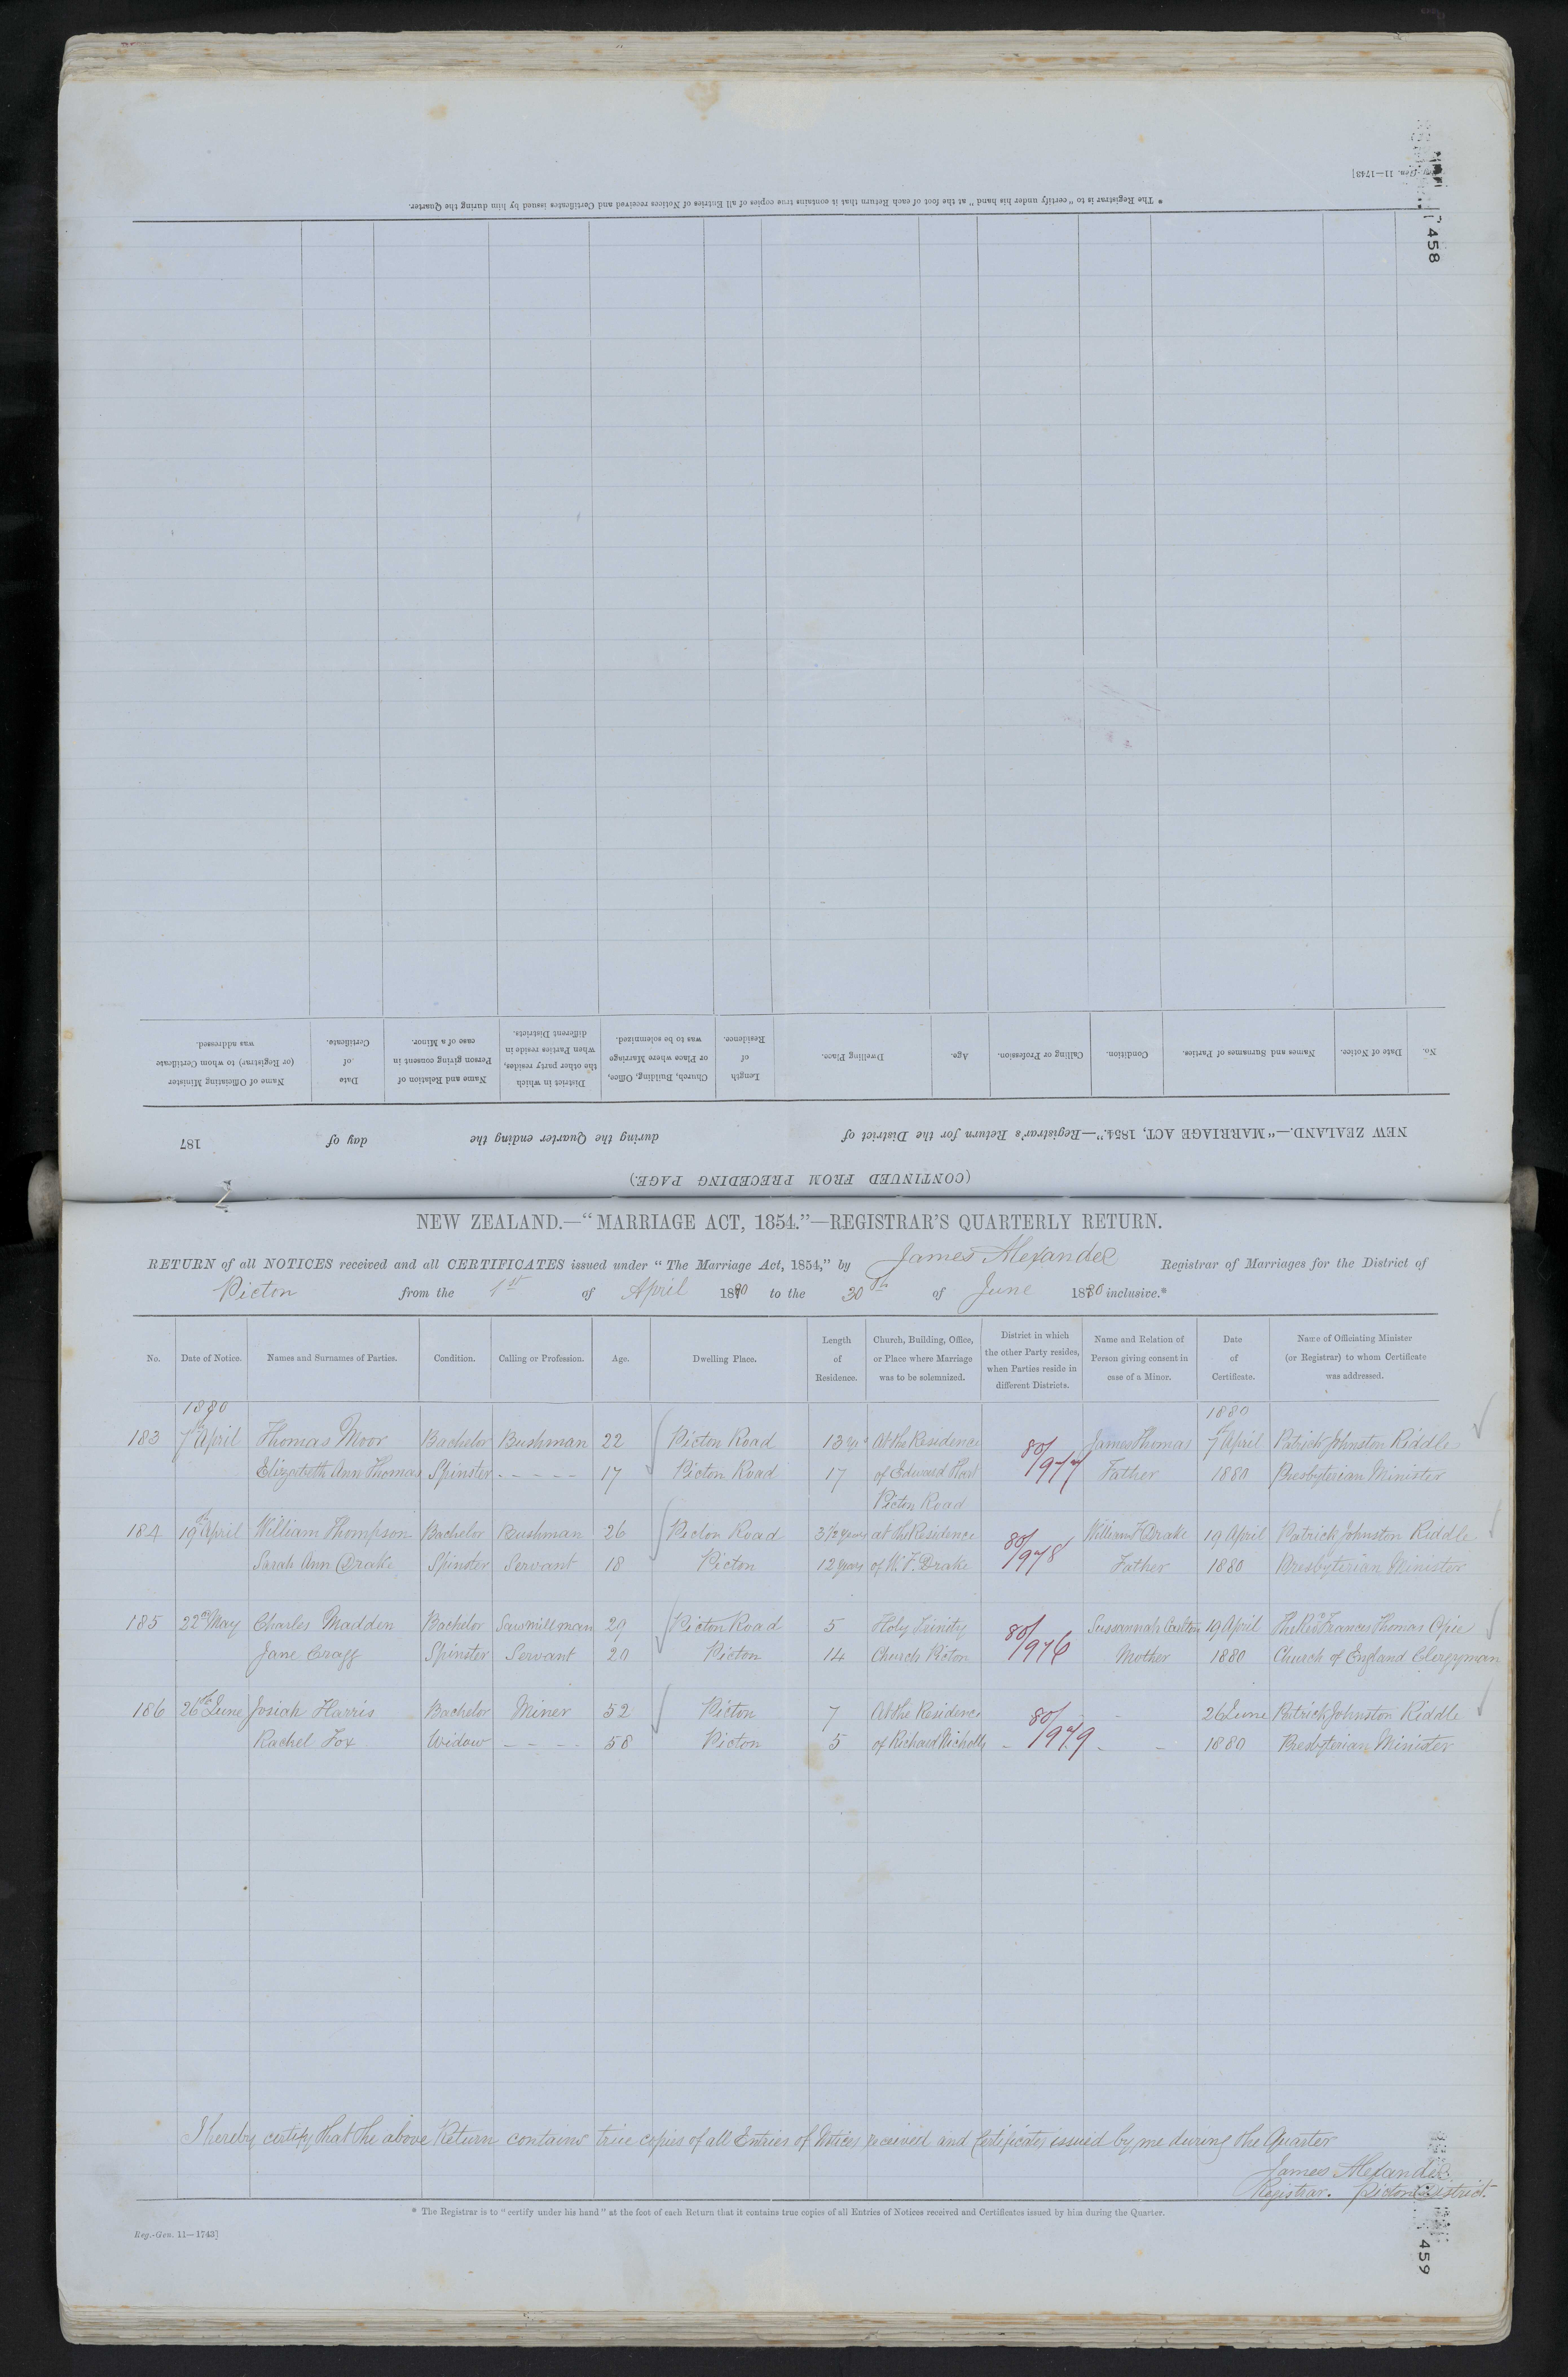 Reg.-Gen. 11—1743]
458
* The Registrar is to "certify under his hand" at the foot of each Return that it contains true copies of all Entries of Notices received and Certificates issued by him during the Quarter.
(CONTINUED FROM PRECEDING PAGE.)
NEW ZEALAND.—"MARRIAGE ACT, 1854."—Registrar's Return for the District of during the Quarter ending the day of 187
No. Date of Notice. Names and Surnames of Parties. Condition. Calling or Profession. Age. Dwelling Place. Length of Residence. Church, Building, Office, or Place where Marriage was to be solemnized. District in which the other party resides, when Parties reside in different Districts. Name and Relation of Person giving consent in case of a Minor. Date of Certificate. Name of Officiating Minister (or Registrar) to whom Certificate was addressed.
NEW ZEALAND.—"MARRIAGE ACT, 1854."—REGISTRAR'S QUARTERLY RETURN.
RETURN of all NOTICES received and all CERTIFICATES issued under "The Marriage Act, 1854," by James Alexander Registrar of Marriages for the District of
Picton from the 1st of April 1880 to the 30th of June 1880 inclusive.*
No. Date of Notice. Names and Surnames of Parties. Condition. Calling or Profession. Age. Dwelling Place. Length of Residence. Church, Building, Office, or Place where Marriage was to be solemnized. District in which the other Party resides, when Parties reside in different Districts. Name and Relation of Person giving consent in case of a Minor. Date of Certificate. Name of Officiating Minister (or Registrar) to whom Certificate was addressed.
1880 1880
183 7th April Thomas Moor Bachelor Bushman 22 Picton Road 13 yrs At the Residence 80/977 James Thomas 7th April Patrick Johnston Riddle
Elizabeth Ann Thomas Spinster - - - - - 17 Picton Road 17 of Edward Hart Father 1880 Presbyterian Minister
Picton Road
184 19th April William Thompson Bachelor Bushman 26 Picton Road 3 1/2 years at the Residence 80/978 William F Drake 19 April Patrick Johnston Riddle
Sarah Ann Drake Spinster Servant 18 Picton 12 years of W. F. Drake Father 1880 Presbyterian Minister
185 22nd May Charles Madden Bachelor Sawmillman 29 Picton Road 5 Holy Trinity 80/976 Sussannah Carlton 19 April The Revd Frances Thomas Opie
Jane Cragg Spinster Servant 20 Picton 14 Church Picton Mother 1880 Church of England Clergyman
186 26th June Josiah Harris Bachelor Miner 52 Picton 7 At the Residence 80/979 - 26 June Patrick Johnston Riddle
Rachel Fox Widow - - - - 58 Picton 5 of Richard Nicholls - - - 1880 Presbyterian Minister
I hereby certify that the above Return contains true copies of all Entries of Notices received and Certificates issued by me during the Quarter
James Alexander
Registrar. Picton District.
* The Registrar is to "certify under his hand" at the foot of each Return that it contains true copies of all Entries of Notices received and Certificates issued by him during the Quarter.
Reg.-Gen. 11—1743]
459